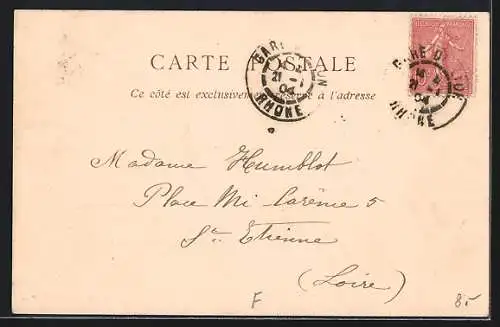 CARTE POSTALE
Ce côté est exclusivement réservé à l'adresse
21 - 1
04
RHONE
04
RHONE
Madame Humblot
Place Mi Carême 5
St. Etienne
(Loire)
F
85